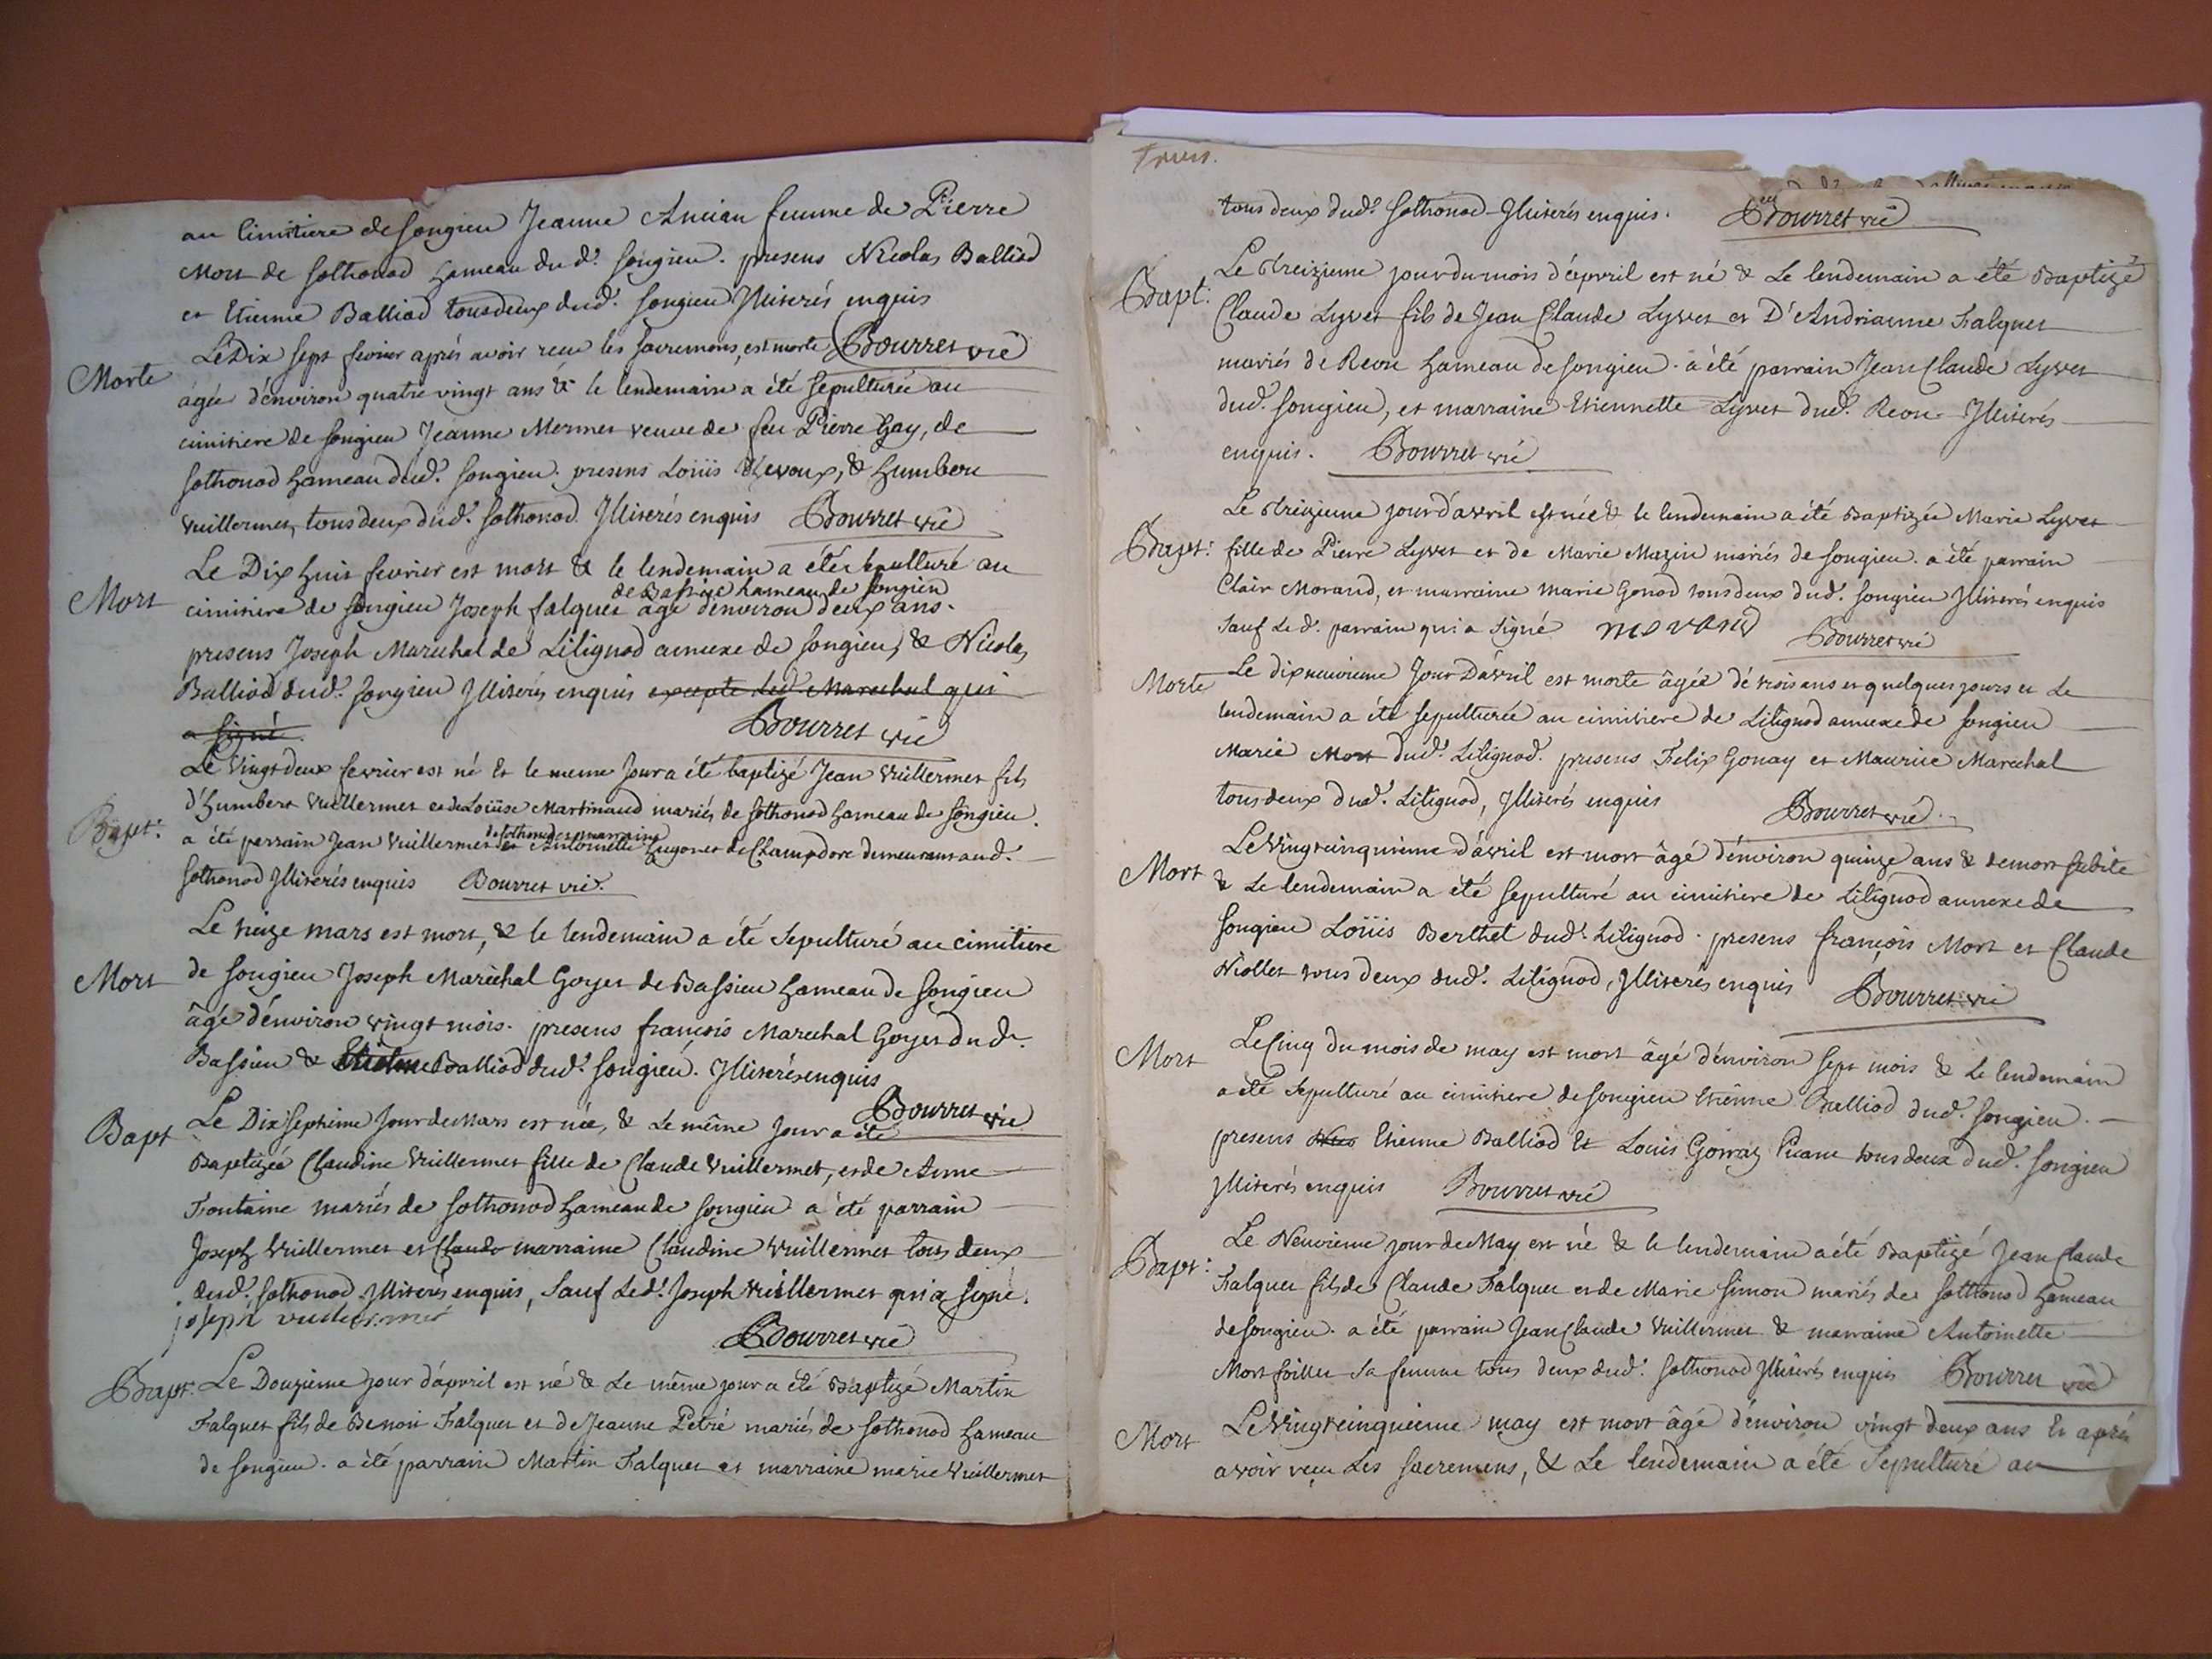 au Cimitiere de Songieu Jeanne Ancian femme de Pierre
Mort de Sothonod hameau dud.t Songieu. presens Nicolas Balliod
et Etienne Balliod tous deux dud.t Songieu Illiterés enquis
Morte
Le Dix sept fevrier aprés avoir receu les sacremens, est morte Bourret vic
âgée d'énviron quatre vingt ans & le lendemain a été sepulturée au
cimitiere de Songieu Jeanne Mermet veuve de feu Pierre Gay, de
Sothonod hameau dud.t Songieu. presens Loüis & humbert
vuillermet, tous deux dud.t Sothonod. Illiterés enquis Bourret vic
Mort
Le Dix huit fevrier est mort & le lendemain a été sepulturé au
de Bassieu hameau de Songieu
cimitiere de Songieu Joseph falquet âgé d'énviron deux ans.
presens Joseph Marechal de Lilignod annexe de Songieu, & Nicolas
Balliod dud.t Songieu Illiterés enquis excepte led.t Marechal qui
a signé. Bourret vic
Bapt:
Le Vingt deux fevrier est né & le meme Jour a été baptizé Jean Vuillermet fils
d'humbert Vuillermet et de Loüise Martinaud mariés de Sothonod hameau de Songieu.
de Sothonod et marraine
a été perrain Jean Vuillermet et Antoinette hugonet de Champdore demeurant aud.t
Sothonod Illiterés enquis Bourret vic.
Mort
Le treize mars est mort, & le lendemain a été Sepulturé au cimitiere
de Songieu Joseph Maréchal Goyet de Bassieu hameau de Songieu
âgé d'énviron vingt mois. presens françois Marechal Goyet dud.t
Bassieu & Etienne Balliod dud.t Songieu. Illiterés enquis
Bourret vic
Bapt
Le Dix Septiéme Jour de Mars est née, & Le même Jour a été
Baptizée Claudine Vuillermet fille de Claude Vuillermet, et de Anne
Fontaine mariés de Sothonod hameau de Songieu a été parrain
Joseph Vuillermet et Claude marraine Claudine Vuillermet tous deux
dud.t Sothonod. Illiterés enquis, Sauf Led.t Joseph Vuillermet qui a signé.
joseph vuillermet
Bourret vic
Bapt:
Le Douzieme jour d'apvril est né & Le même jour a été Baptizé Martin
Falquet fils de Benoit Falquet et de Jeanne Petré mariés de Sothonod hameau
de Songieu. a été parrain Martin Falquet et marraine marie Vuillermet
tous deux dud.t Sothonod Illiterés enquis. Bourret vic
Bapt:
Le treizieme jour du mois d'apvril est né & Le lendemain a été Baptizé
Claude Lyvet fils de Jean Claude Lyvet et D'Andrianne Falquet
mariés de Reou hameau de Songieu. a été parrain Jean Claude Lyvet
dud.t Songieu, et marraine Etiennette Lyvet dud.t Reou. Illiterés
enquis. Bourret vic
Bapt:
Le treizieme jour d'avril est née & le lendemain a été Baptizée Marie Lyvet
fille de Pierre Lyvet et de Marie Mazin mariés de Songieu. a été parrain
Clair Morand, et marraine Marie Gonod tous deux dud.t Songieu Illiterés enquis
Sauf Le d.t parrain qui a Signé morand Bourret vic
Morte
Le dixneuvieme Jour D'avril est morte âgée de trois ans et quelques jours et Le
lendemain a été sepulturée au cimitiere de Lilignod annexe de Songieu
Marie Mort dud.t Lilignod. presens Felix Gonay et Maurice Marechal
tous deux dud.t Lilignod, Illiterés enquis Bourret vic
Mort
Le Vingt cinquieme d'avril est mort âgé d'énviron quinze ans & de mort subite
& Le lendemain a été sepulturé au cimitiere de Lilignod annexe de
Songieu Loüis Berthet dud.t Lilignod. presens françois Mort et Claude
Niollet tous deux dud.t Lilignod, Illiterés enquis Bourret vic
Mort
Le Cinq du mois de may est mort âgé d'énviron sept mois & Le lendemain
a été sepulturé au cimitiere de Songieu Etienne Balliod dud.t Songieu.
presens Etienne Balliod & Louis tous deux dud.t Songieu
Illiterés enquis Bourret vic
Bapt:
Le Neuvieme jour de May est né & le lendemain a été Baptizé Jean Claude
Falquet fils de Claude Falquet et de Marie Simon mariés de Sothonod hameau
de Songieu. a été parrain Jean Claude Vuillermet & marraine Antoinette
Mort sa femme tous deux dud.t Sothonod Illiterés enquis Bourret vic
Mort
Le Vingt cinquieme may est mort âgé d'énviron vingt deux ans & aprés
avoir reçu Les sacremens, & Le lendemain a été Sepulturé au